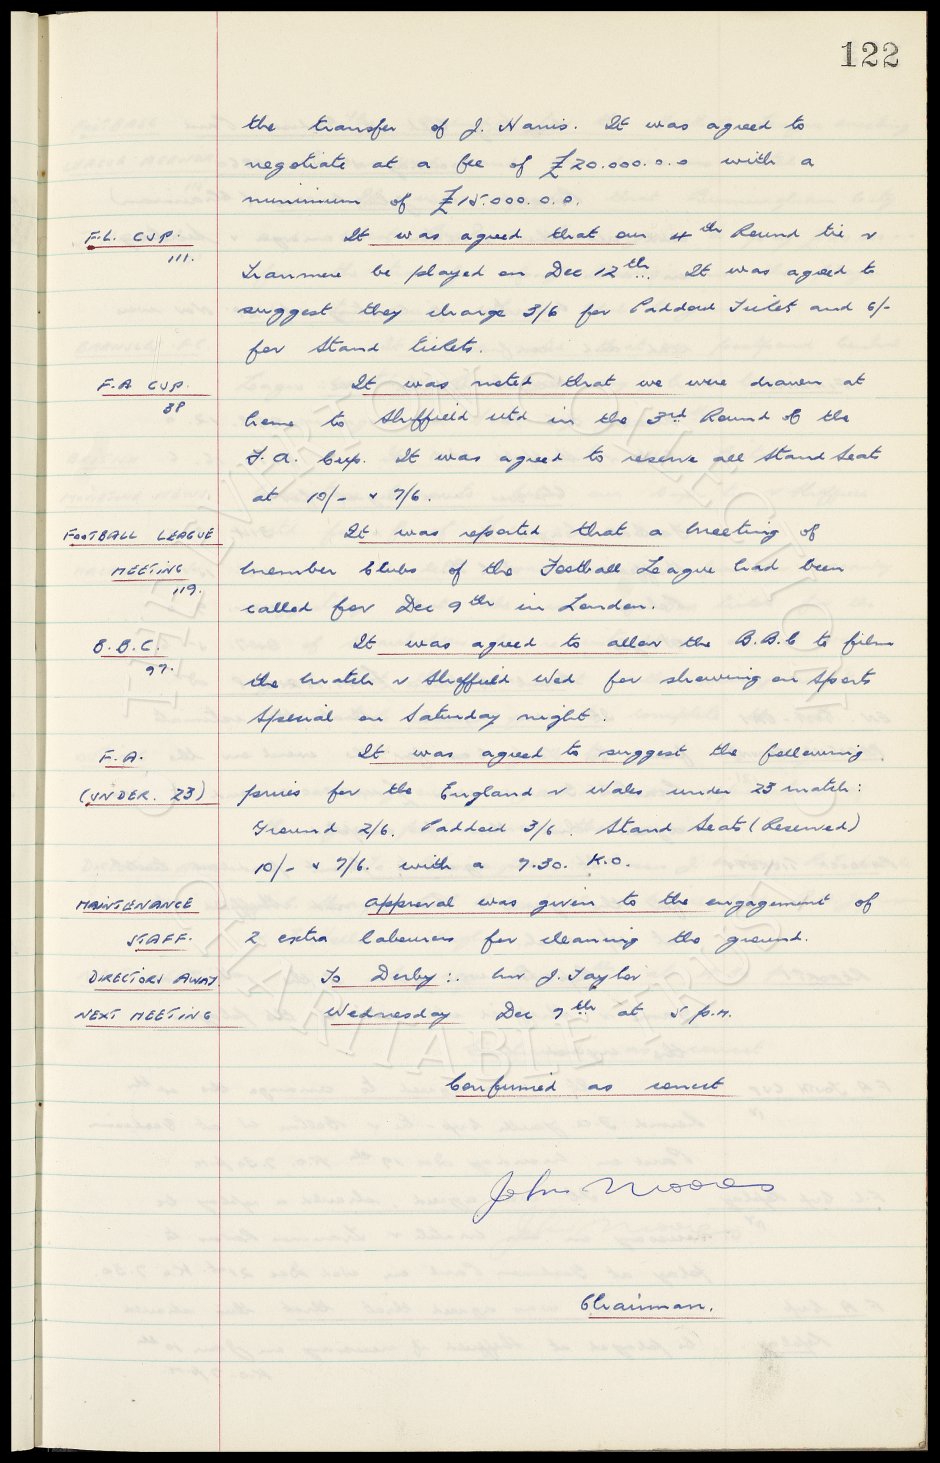 122
the transfer of J. Harris. It was agreed to
negotiate at a fee of £20.000.0.0 with a
minimum of £15.000.0.0.
F.L. CUP. It was agreed that our 4th Round tie v
111.
Tranmere be played on Dec 12th. It was agreed to
suggest they charge 3/6 for Paddock Tickets and 6/-
for Stand tickets.
F.A CUP. It was noted that we were drawn at
88
home to Sheffield Utd in the 3rd Round of the
F.A. Cup. It was agreed to reserve all Stand Seats
at 10/- & 7/6.
FOOTBALL LEAGUE It was reported that a meeting of
MEETING member Clubs of the Football League had been
119.
called for Dec 9th in London.
B.B.C. It was agreed to allow the B.B.C to film
97.
the match v Sheffield Wed for showing on Sports
Special on Saturday night.
F.A. It was agreed to suggest the following
(UNDER. 23) prices for the England v Wales under 23 match:
Ground 2/6. Paddock 3/6. Stand Seats (Reserved)
10/- & 7/6. with a 7.30. K.O.
MAINTENANCE approval was given to the engagement of
STAFF. 2 extra labourers for cleaning the ground.
DIRECTORS AWAY. To Derby:. Mr J. Taylor
NEXT MEETING Wednesday Dec 7th at 5 p.m.
Confirmed as correct
John Moores
Chairman.
THE EVERTON COLLECTION
CHARITABLE TRUST